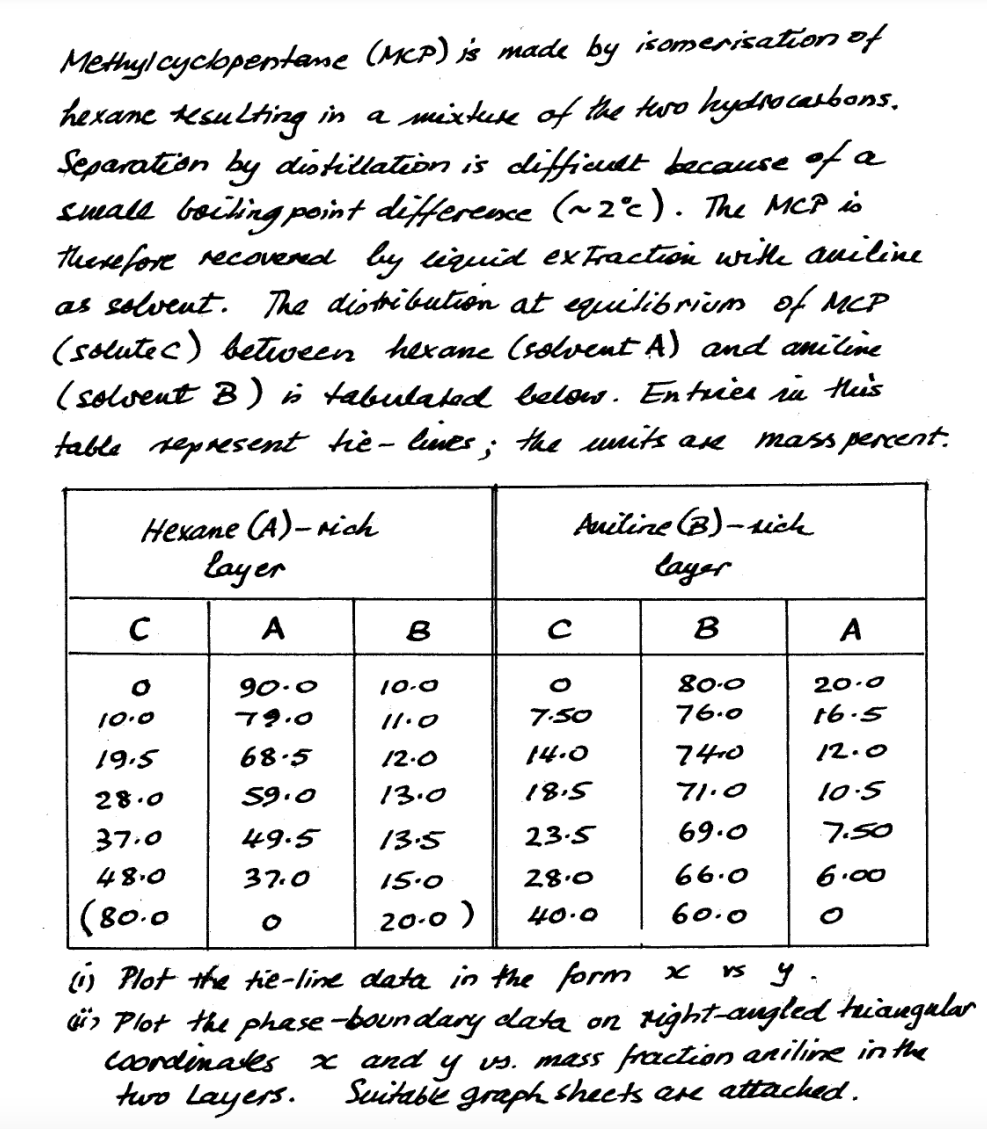 Methylcyclopentane (MCP) is made by isomerisation of
hexane resulting in a mixture of the two hydrocarbons.
Separation by distillation is difficult because of a
small boiling point difference (~2°c). The MCP is
therefore recovered by liquid extraction with aniline
as solvent. The distribution at equilibrium of MCP
(solute C) between hexane (solvent A) and aniline
(solvent B) is tabulated below. Entries in this
table represent tie-lines; the units are mass percent.
Hexane (A)-rich layer Aniline (B)-rich layer
C A B C B A
0 90.0 10.0 0 80.0 20.0
10.0 79.0 11.0 7.50 76.0 16.5
19.5 68.5 12.0 14.0 74.0 12.0
28.0 59.0 13.0 18.5 71.0 10.5
37.0 49.5 13.5 23.5 69.0 7.50
48.0 37.0 15.0 28.0 66.0 6.00
(80.0 0 20.0) 40.0 60.0 0
(i) Plot the tie-line data in the form x vs y.
(ii) Plot the phase-boundary data on right-angled triangular
coordinates x and y vs. mass fraction aniline in the
two layers. Suitable graph sheets are attached.